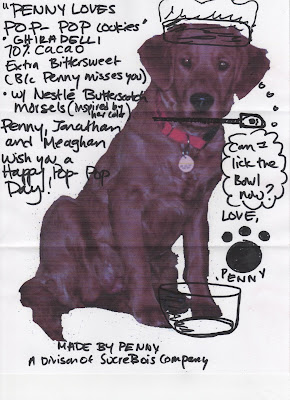 "PENNY LOVES
POP- POP COOKIES"
• GHIRADELLI
70% CACAO
Extra Bittersweet
(B/c Penny misses you)
• w/ Nestlé Butterscotch
Morsels (inspired by
her color)
Penny, Jonathan
and Meaghan
Wish you a
Happy Pop-Pop
Day!
Can I
lick the
Bowl
now?
LOVE,
PENNY
MADE BY PENNY
A Division of SucreBois Company